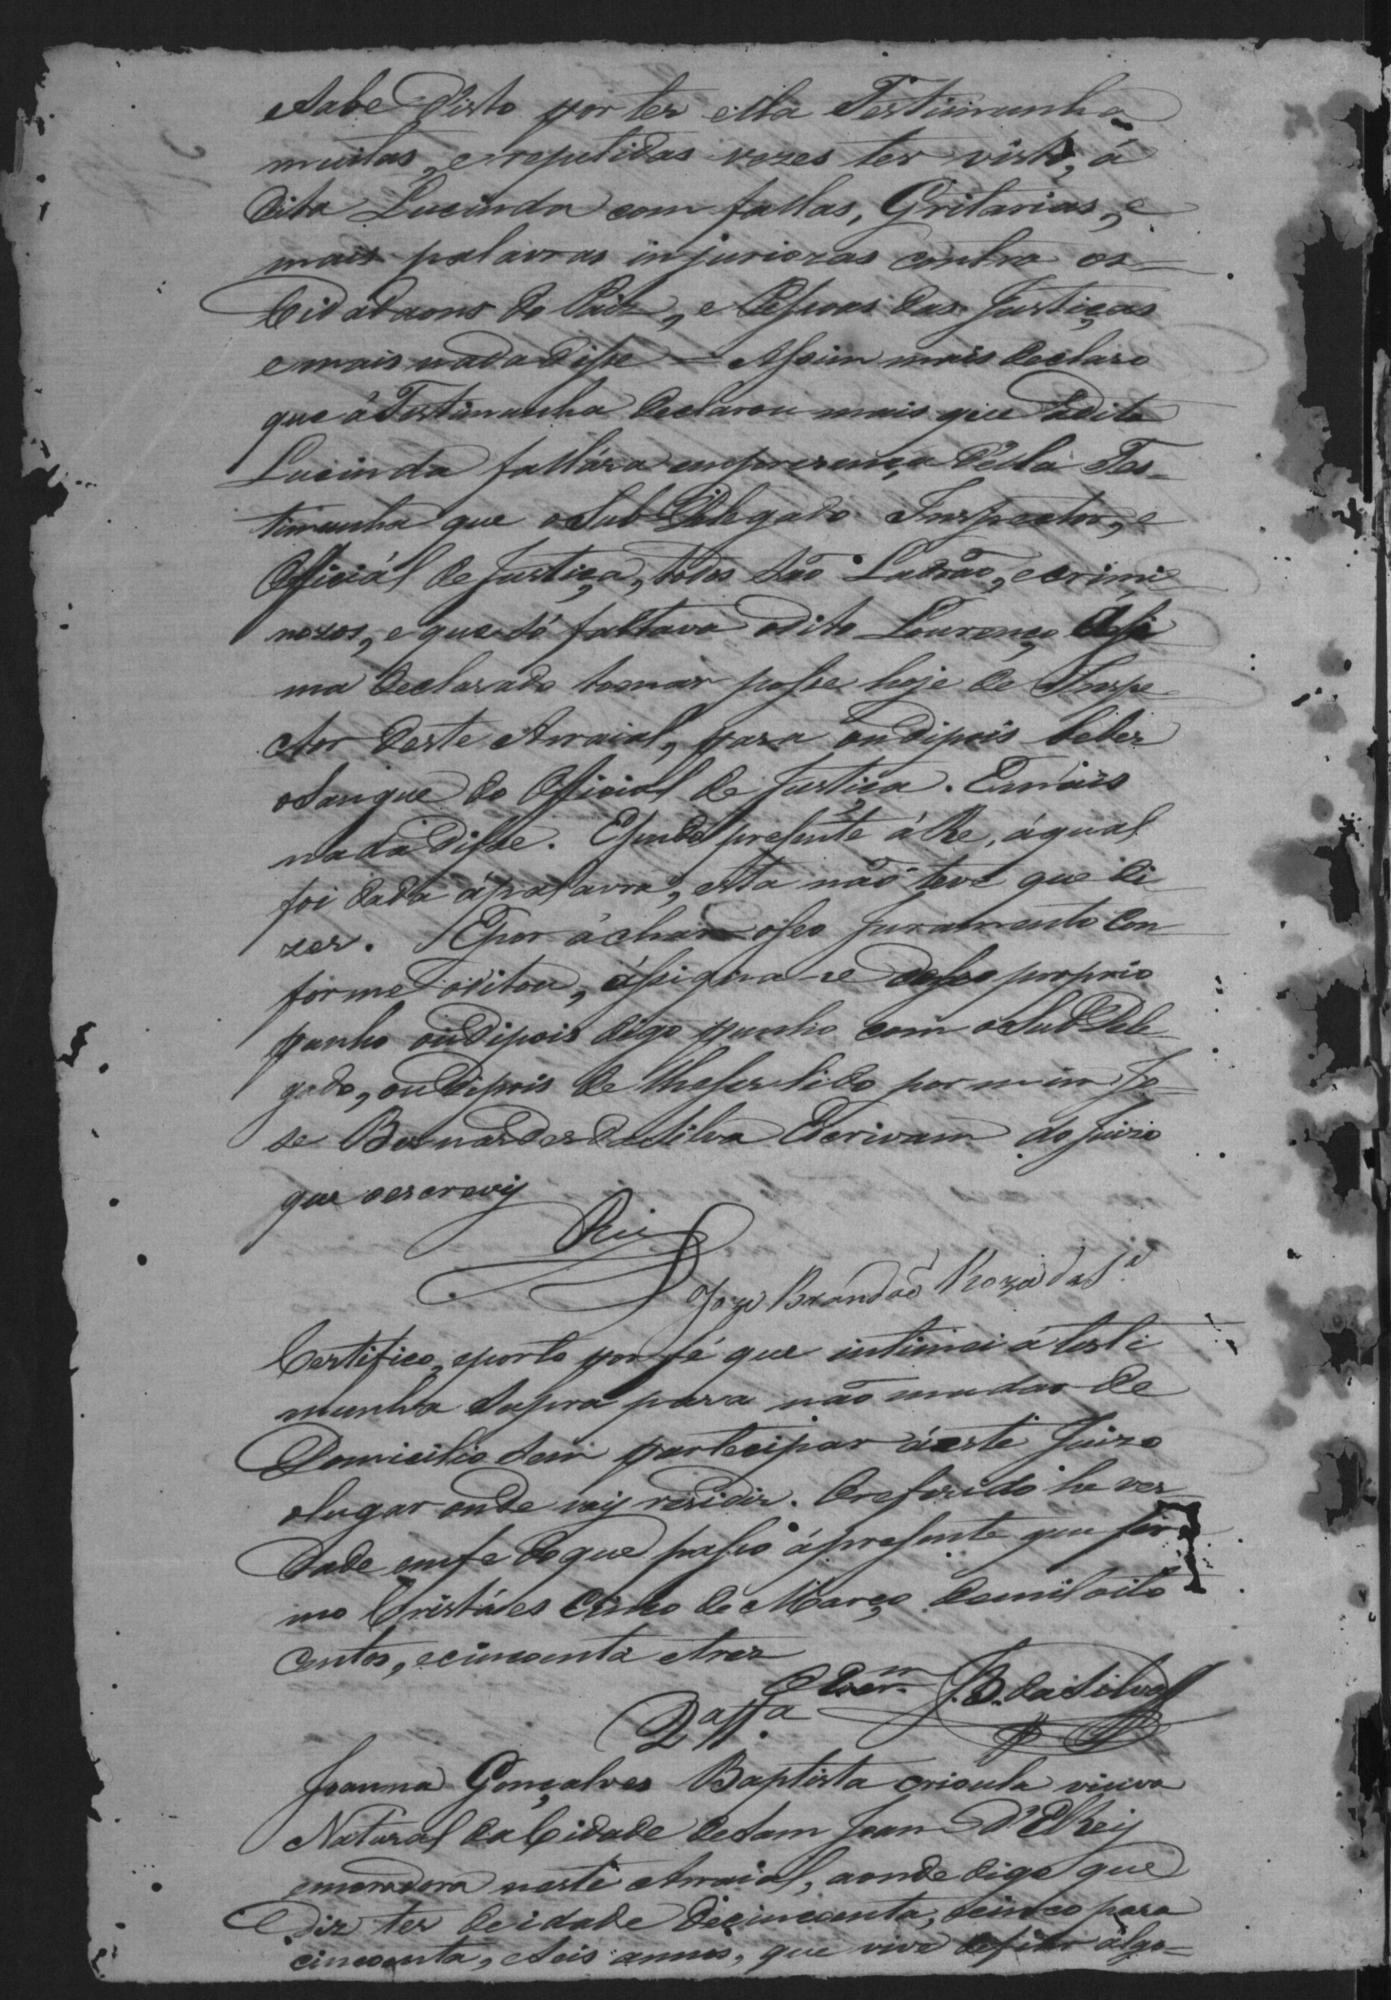 Sabe disto por ter ella Testimunha
muitas, e repetidas vezes ter visto, á
dita Lucinda com fallas, Gritarias, e
mais palavras injuriozas contra os
Cidadaons do Paiz, e Pessoas das Justiças
e mais nada disse — Assim mais declaro
que á Testimunha declarou mais que adita
Lucinda fallára em prezença d'ella Tes-
timunha que o Sub Delegado Inspector, e
Official de Justiça, todos são Ladrão, e crimi
nozos, e que só faltava odito Lourenço
ma declarado tomar posse hoje de Inspe
ctor deste Arraial, para ou dipois beber
oSangue do Official de Justiça. Emais
nada disse. Esendo presente á Re, áqual
foi dada ápalavra, esta não teve que di
zer. Epor áchar oseo Juramento con
forme oditou, ássigna-se deseo proprio
panho ou dipois digo punho com oSub Dele-
gado, ou dipois de lheser lido por mim Jo-
se Bernardes da Silva Escrivam do Juizo
que oescrevy
Joze Brandaõ Roza da S.ª
Certifico, eporto por fé que intimei á testi
munha Supra para não mudar de
Domicilio sem partecipar áeste Juizo
olugar onde vay residir. Oreferido he ver
dade emfe doque passo ápresente que fir
mo Cristáes Cinco de Março demil oito
centos, ecincoenta etres
O Escr.m J. B. da Silva
Joanna Gonçalves Baptista crioula viuva
Natural da Cidade deSam Joam D'ElRey
emoradora neste Arraial, aonde digo que
Diz ter de idade decincoenta, ecinco para
cincoenta, eSeis annos, que vive defiar álgo-